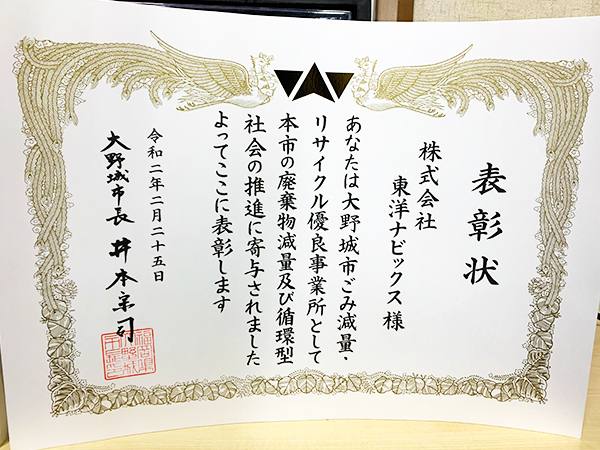 表彰状
株式会社
東洋ナビックス 様
あなたは大野城市ごみ減量・
リサイクル優良事業所として
本市の廃棄物減量及び循環型
社会の推進に寄与されました
よってここに表彰します
令和二年二月二十五日
大野城市長 井本宗司